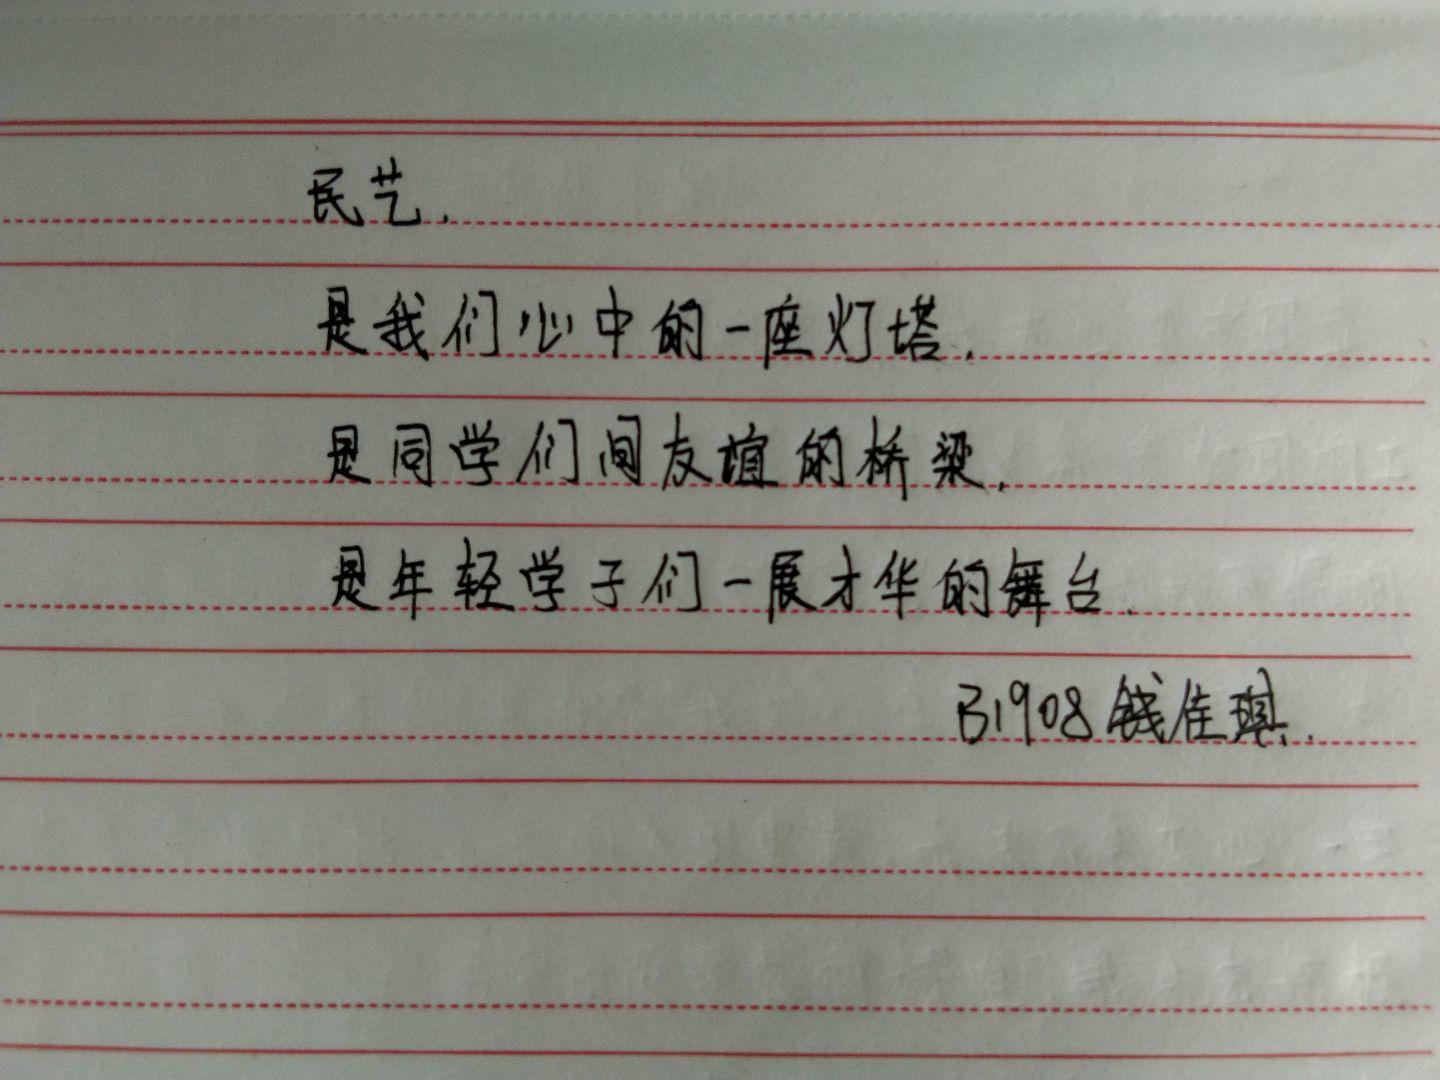 民艺.
是我们心中的一座灯塔.
是同学们间友谊的桥梁.
是年轻学子们一展才华的舞台.
B1908钱佳琪.